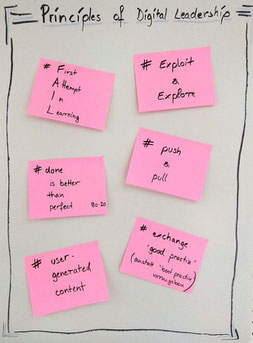 Principles of Digital Leadership
# First
Attempt
In
Learning
# Exploit
&
Explore
# done
is better
than
perfect 80:20
# push
&
pull
# user-
generated
content
# exchange
"good practis"
(anstatt "best practis"
vorzugeben)